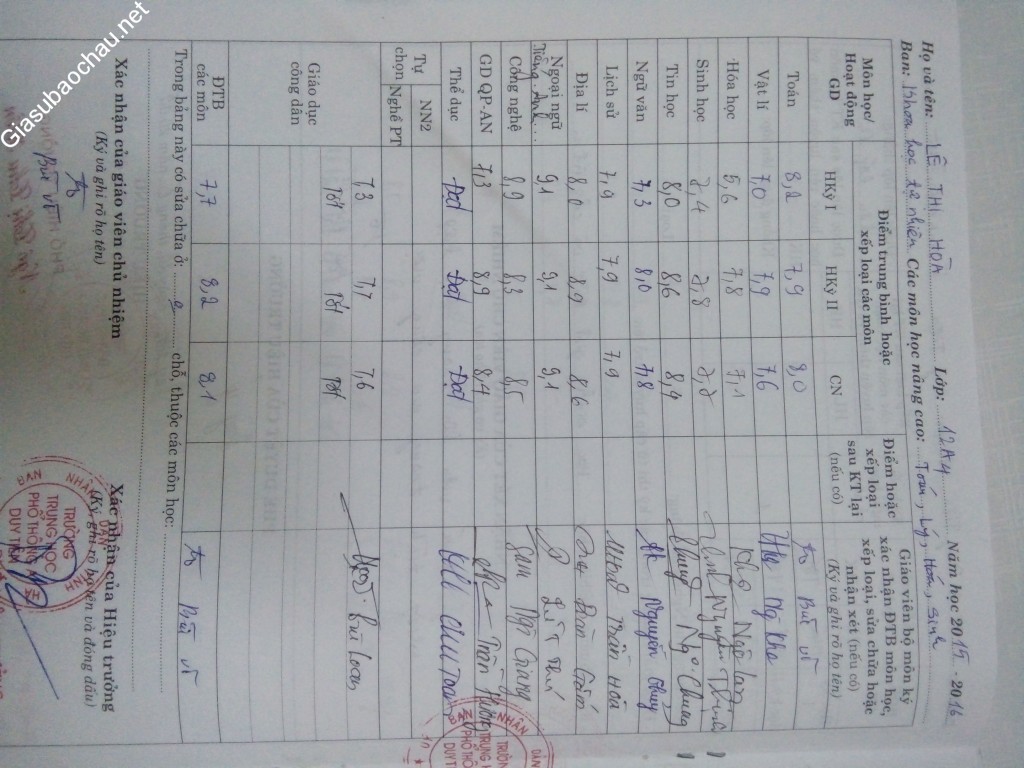 Họ và tên: LÊ THỊ HÒA Lớp: 12A4 Năm học 2015 - 2016
Ban: Khoa học tự nhiên Các môn học nâng cao: Toán, Lý, Hóa, Sinh
Môn học/ Hoạt động GD
Điểm trung bình hoặc xếp loại các môn
HKỳ I HKỳ II CN
Điểm hoặc xếp loại sau KT lại (nếu có)
Giáo viên bộ môn ký xác nhận ĐTB môn học, xếp loại, sửa chữa hoặc nhận xét (nếu có)
(Ký và ghi rõ họ tên)
Toán 8,2 7,9 8,0 Bùi Vĩ
Vật lí 7,0 7,9 7,6
Hóa học 5,6 7,8 7,1
Sinh học 7,4 7,8 7,7
Tin học 8,0 8,6 8,4
Ngữ văn 7,3 8,0 7,8 Nguyễn Thủy
Lịch sử 7,9 7,9 7,9
Địa lí 8,0 8,9 8,6
Ngoại ngữ Tiếng Anh 9,1 9,1 9,1
Công nghệ 8,9 8,3 8,5 Ngô Giang
GD QP-AN 7,3 8,9 8,4 Trần
Thể dục Đạt Đạt Đạt
Tự chọn NN2
Nghề PT
Giáo dục công dân 7,3 7,7 7,6 Bùi Loan
Tốt Tốt Tốt
ĐTB các môn 7,7 8,2 8,1 Bùi Vĩ
Trong bảng này có sửa chữa ở: chỗ, thuộc các môn học:
Xác nhận của giáo viên chủ nhiệm
(Ký và ghi rõ họ tên)
Bùi Vĩ
Xác nhận của Hiệu trưởng
(Ký, ghi rõ họ tên và đóng dấu)
TRƯỜNG
TRUNG HỌC
PHỔ THÔNG
DUY TÂN
Giasubaochau.net